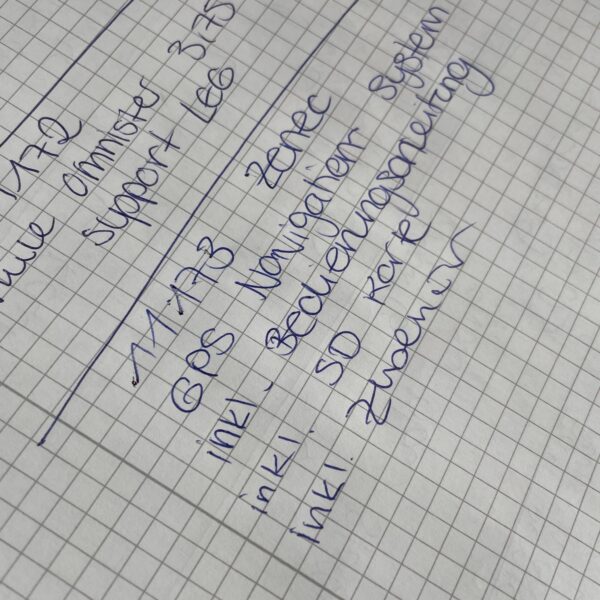 1172
omnister 3.75
support LEG
11173 Zenec
GPS Navigation System
inkl. Bedienungsanleitung
inkl. SD Karte
inkl. Zubehör